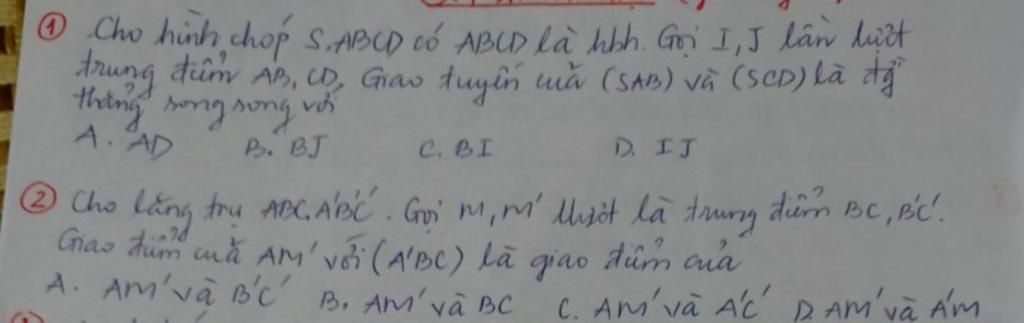 ① Cho hình chóp S.ABCD có ABCD là hbh. Gọi I, J lần lượt
trung điểm AB, CD, Giao tuyến của (SAB) và (SCD) là đg
thẳng song song với
A. AD B. BJ C. BI D. IJ
② Cho lăng trụ ABC.A'B'C'. Gọi M, M' lượt là trung điểm BC, B'C'.
Giao điểm của AM' với (A'BC) là giao điểm của
A. AM' và B'C' B. AM' và BC C. AM' và A'C' D. AM' và A'M